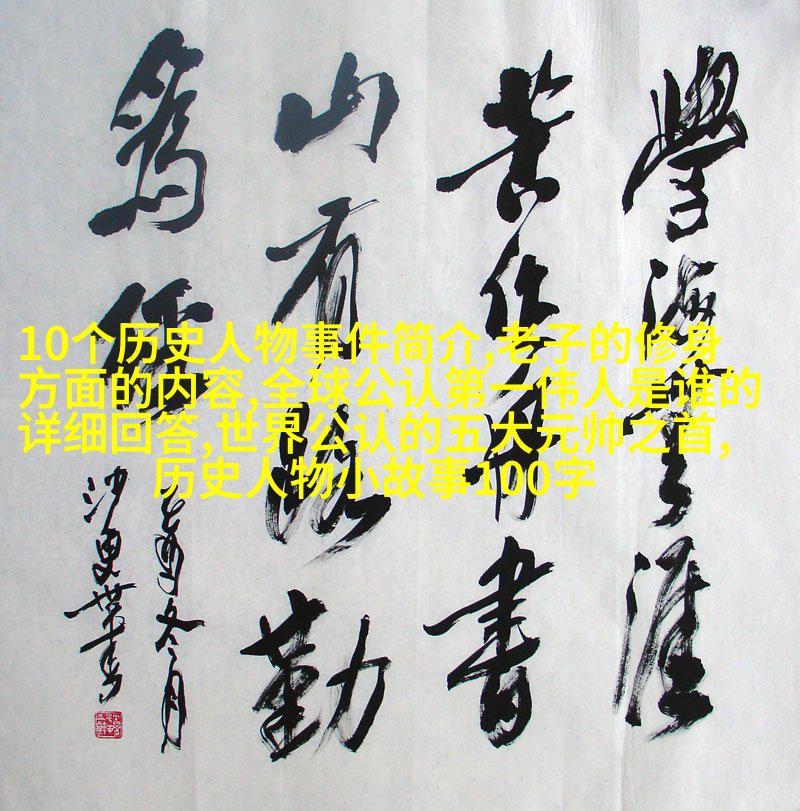 學海無涯
苦作舟書
山有路勤
為徑
冬月
10个历史人物事件简介,老子的修身
方面的内容,全球公认第一伟人是谁的
详细回答,世界公认的五大元帅之首,
历史人物小故事100字